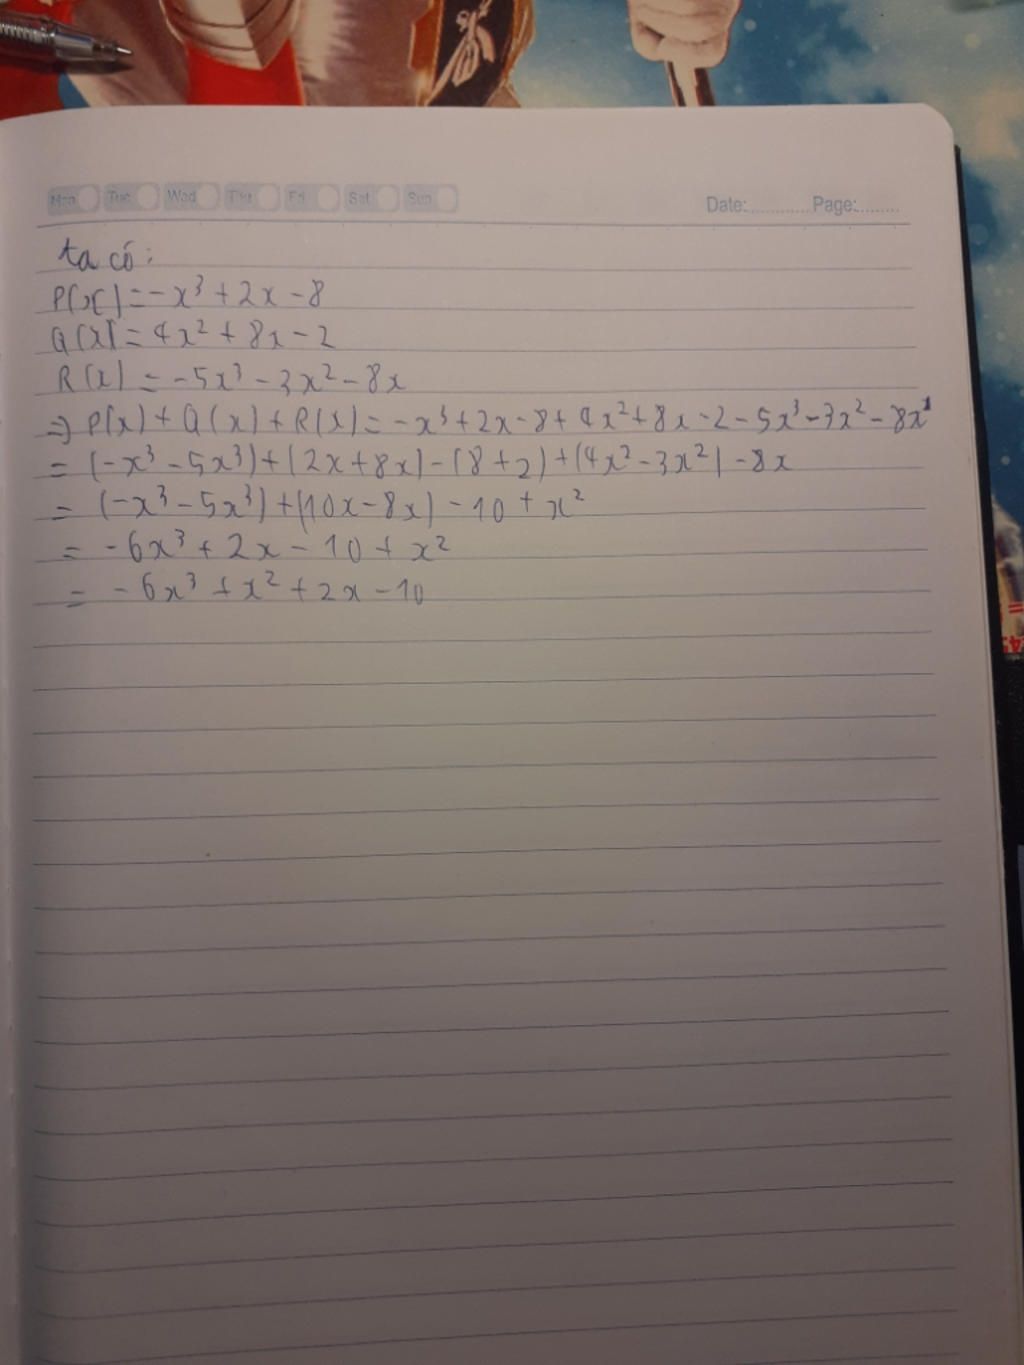 Mon Tue Wed Thu Fri Sat Sun
Date:............Page:........
ta có:
P(x)=-x³+2x-8
Q(x)=4x²+8x-2
R(x)=-5x³-3x²-8x
=> P(x)+Q(x)+R(x)=-x³+2x-8+4x²+8x-2-5x³-3x²-8x
=(-x³-5x³)+(2x+8x)-(8+2)+(4x²-3x²)-8x
=(-x³-5x³)+(10x-8x)-10+x²
=-6x³+2x-10+x²
=-6x³+x²+2x-10